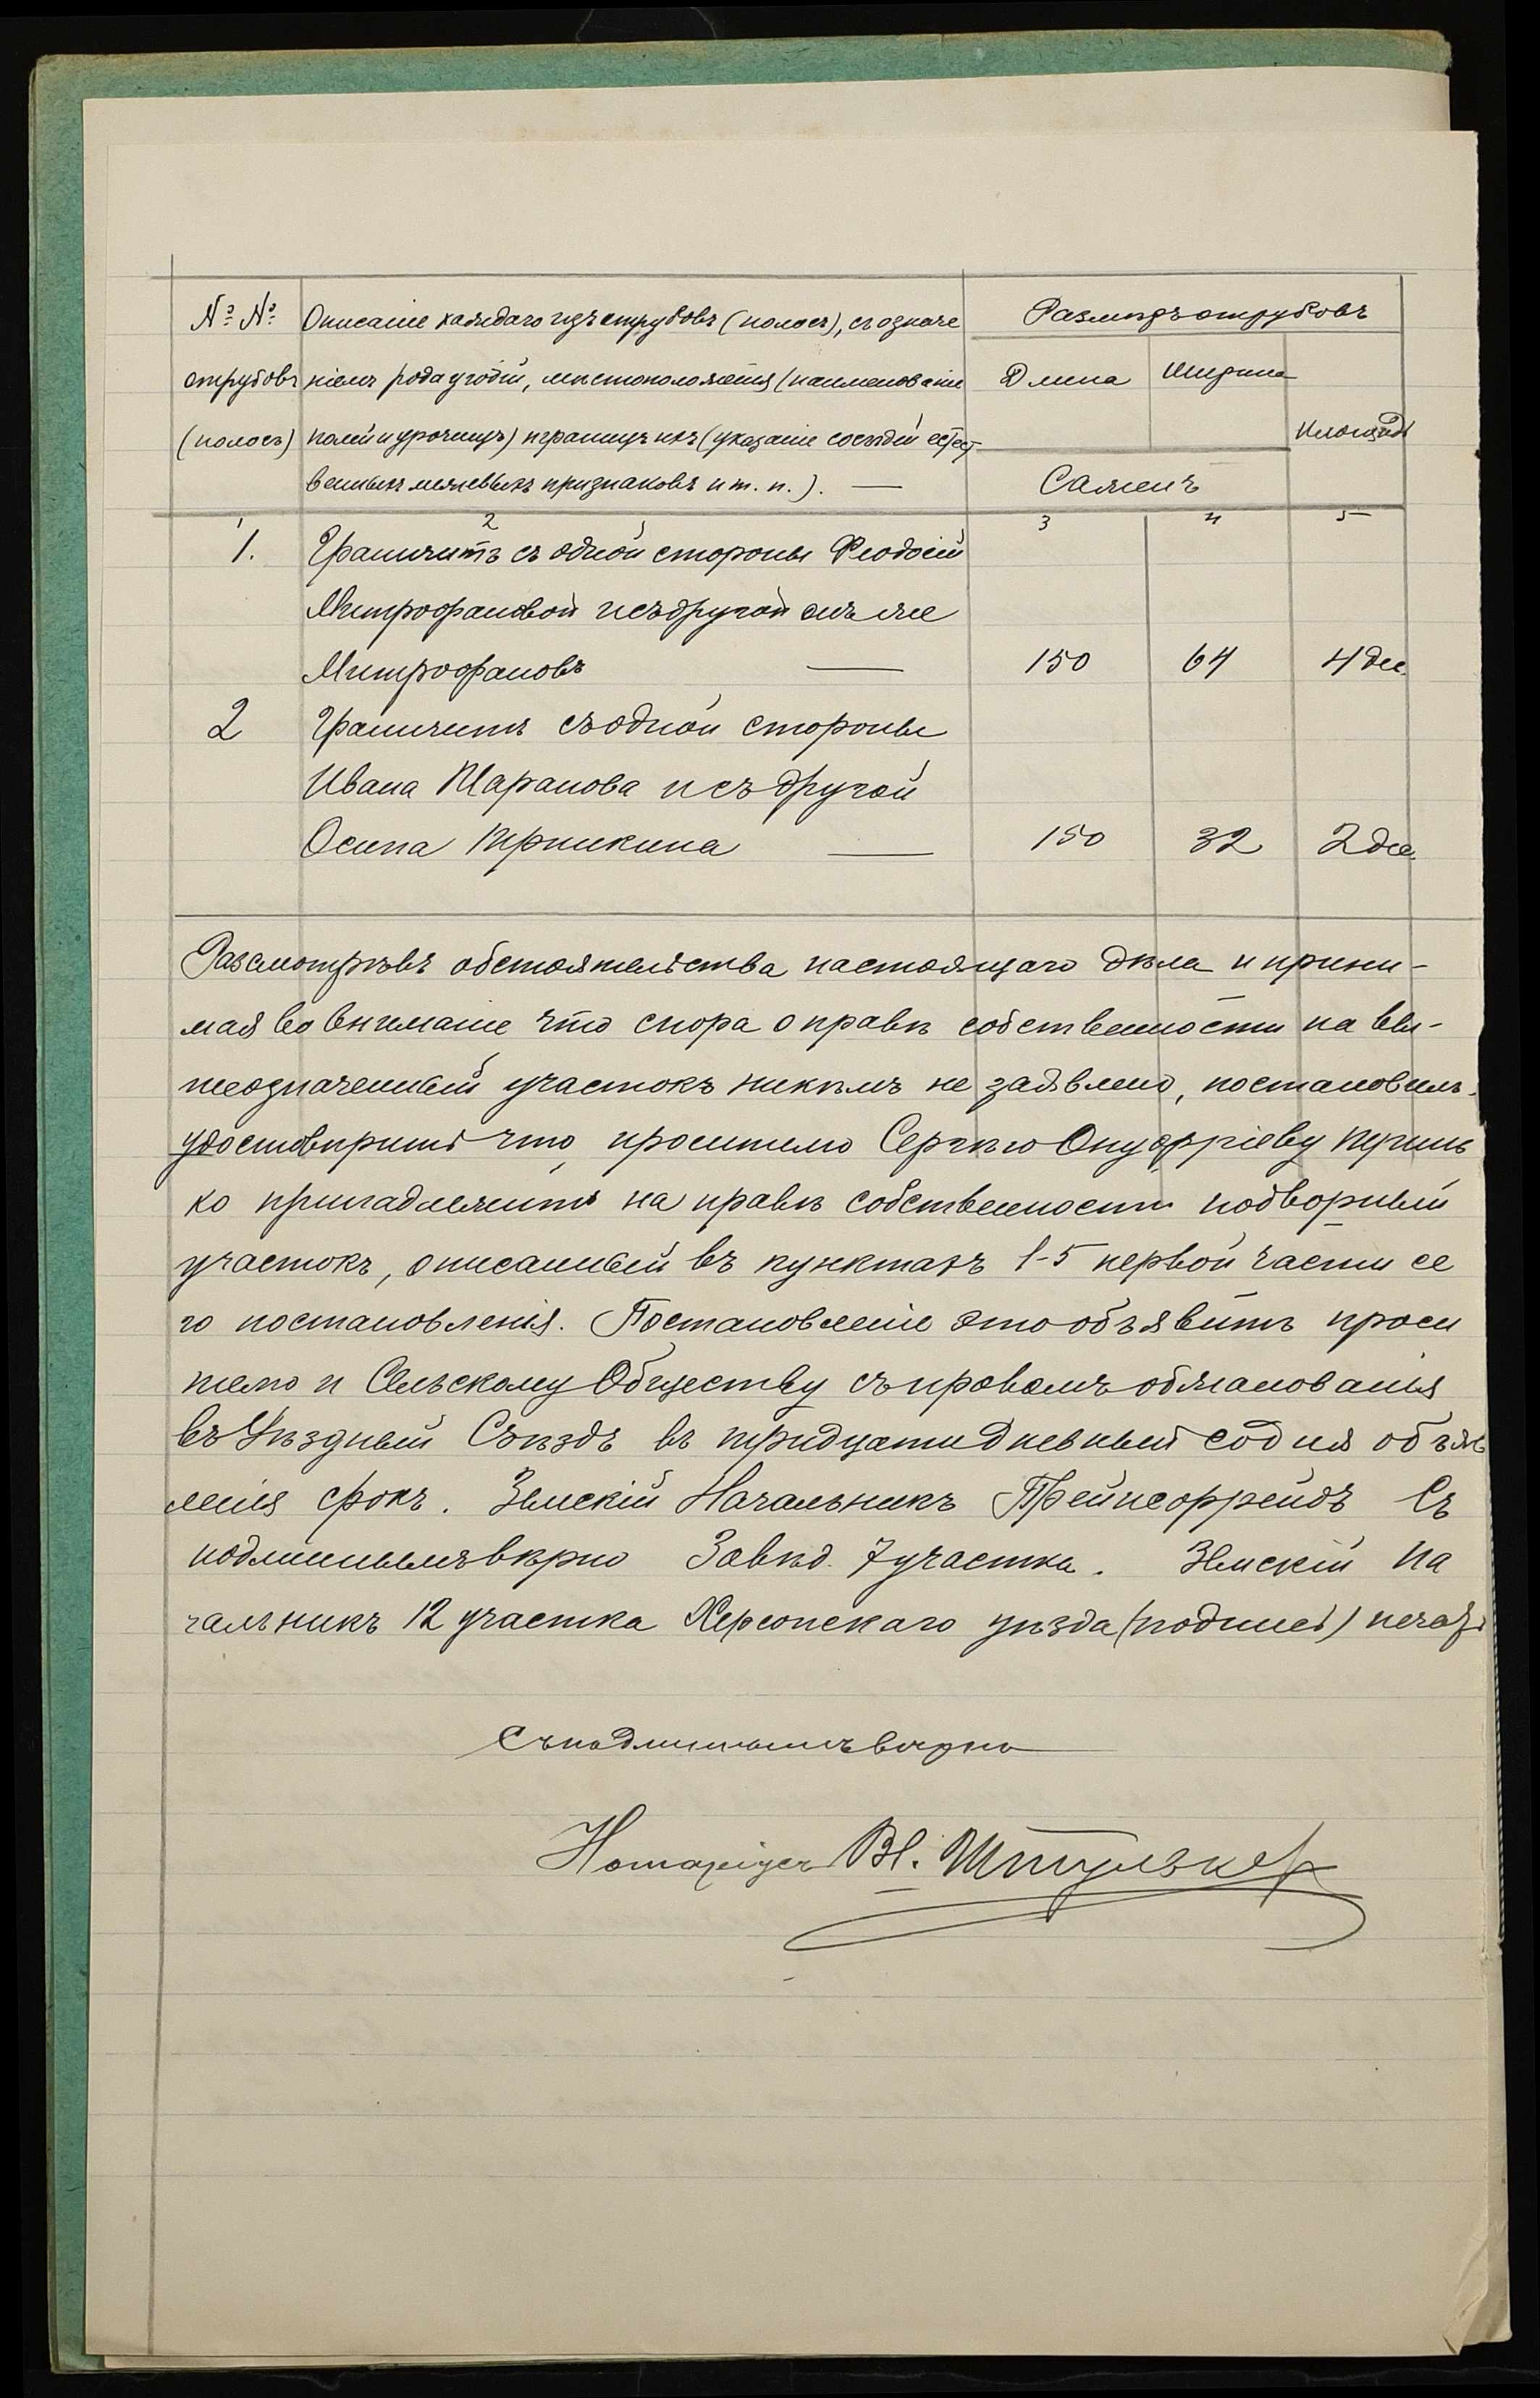 № № Описаніе каждаго изъ отрубовъ (полосъ), съ означе Размѣръ отрубовъ
отрубовъ ніемъ рода угодій, мѣстоположенія (наименованіе Длина Ширина
(полосъ) полей и урочищъ) и границъ ихъ (указаніе сосѣдей естест- Площадь
венныхъ межевыхъ признаковъ и т. п.). — Сажень
1 2 3 4 5
1. Граничитъ съ одной стороны Феодосіи
Митрофановой и съ другой онъ же
Митрофановъ — 150 64 4 дес.
2 Граничитъ съ одной стороны
Ивана Шарапова и съ другой
Осипа — 150 32 2 дес.
Разсмотрѣвъ обстоятельства настоящаго дѣла и прини-
мая во вниманіе что спора о правѣ собственности на вы-
шеозначенный участокъ никѣмъ не заявлено, постановилъ:
удостовѣрить что, просителю Сергѣю Онуфріеву
ко принадлежитъ на правѣ собственности подворный
участокъ, описанный въ пунктахъ 1-5 первой части се
го постановленія. Постановленіе это объявить проси
телю и Сельскому Обществу съ правомъ обжалованія
въ Уѣздный Съѣздъ въ тридцатидневный со дня объяв
ленія срокъ. Земскій Начальникъ Съ
подлиннымъ вѣрно Завѣд. 7 участка. Земскій На
чальникъ 12 участка Херсонскаго уѣзда (подпись) печать
Съ подлиннымъ вѣрно
Нотаріусъ Вл. Штульке𝑝